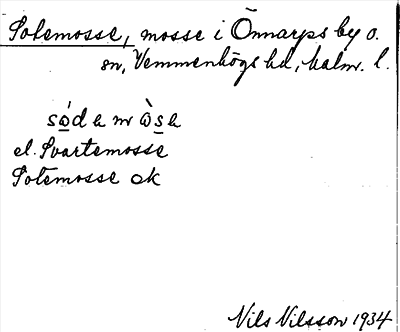 Sotemosse, mosse i Önnarps by o.
sn, Vemmenhögs hd, Malm. l.
sǿd a m ò̱s̱a
el. Svartemosse
Sotemosse ek
Nils Nilsson 1934